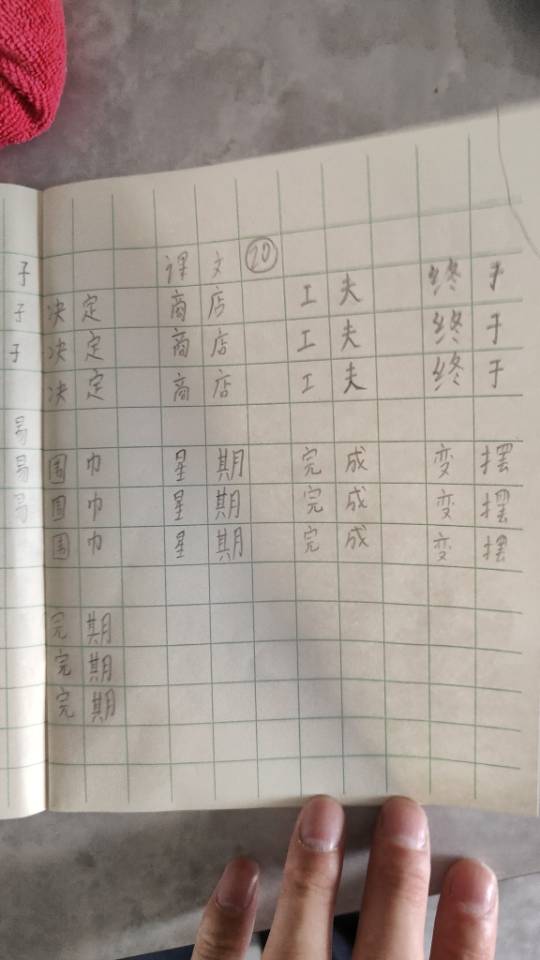 课文 20
子 决定 商店 工夫 终于
子 决定 商店 工夫 终于
子 决定 商店 工夫 终于
易
易 围巾 星期 完成 变摆
易 围巾 星期 完成 变摆
围巾 星期 完成 变摆
完期
完期
完期